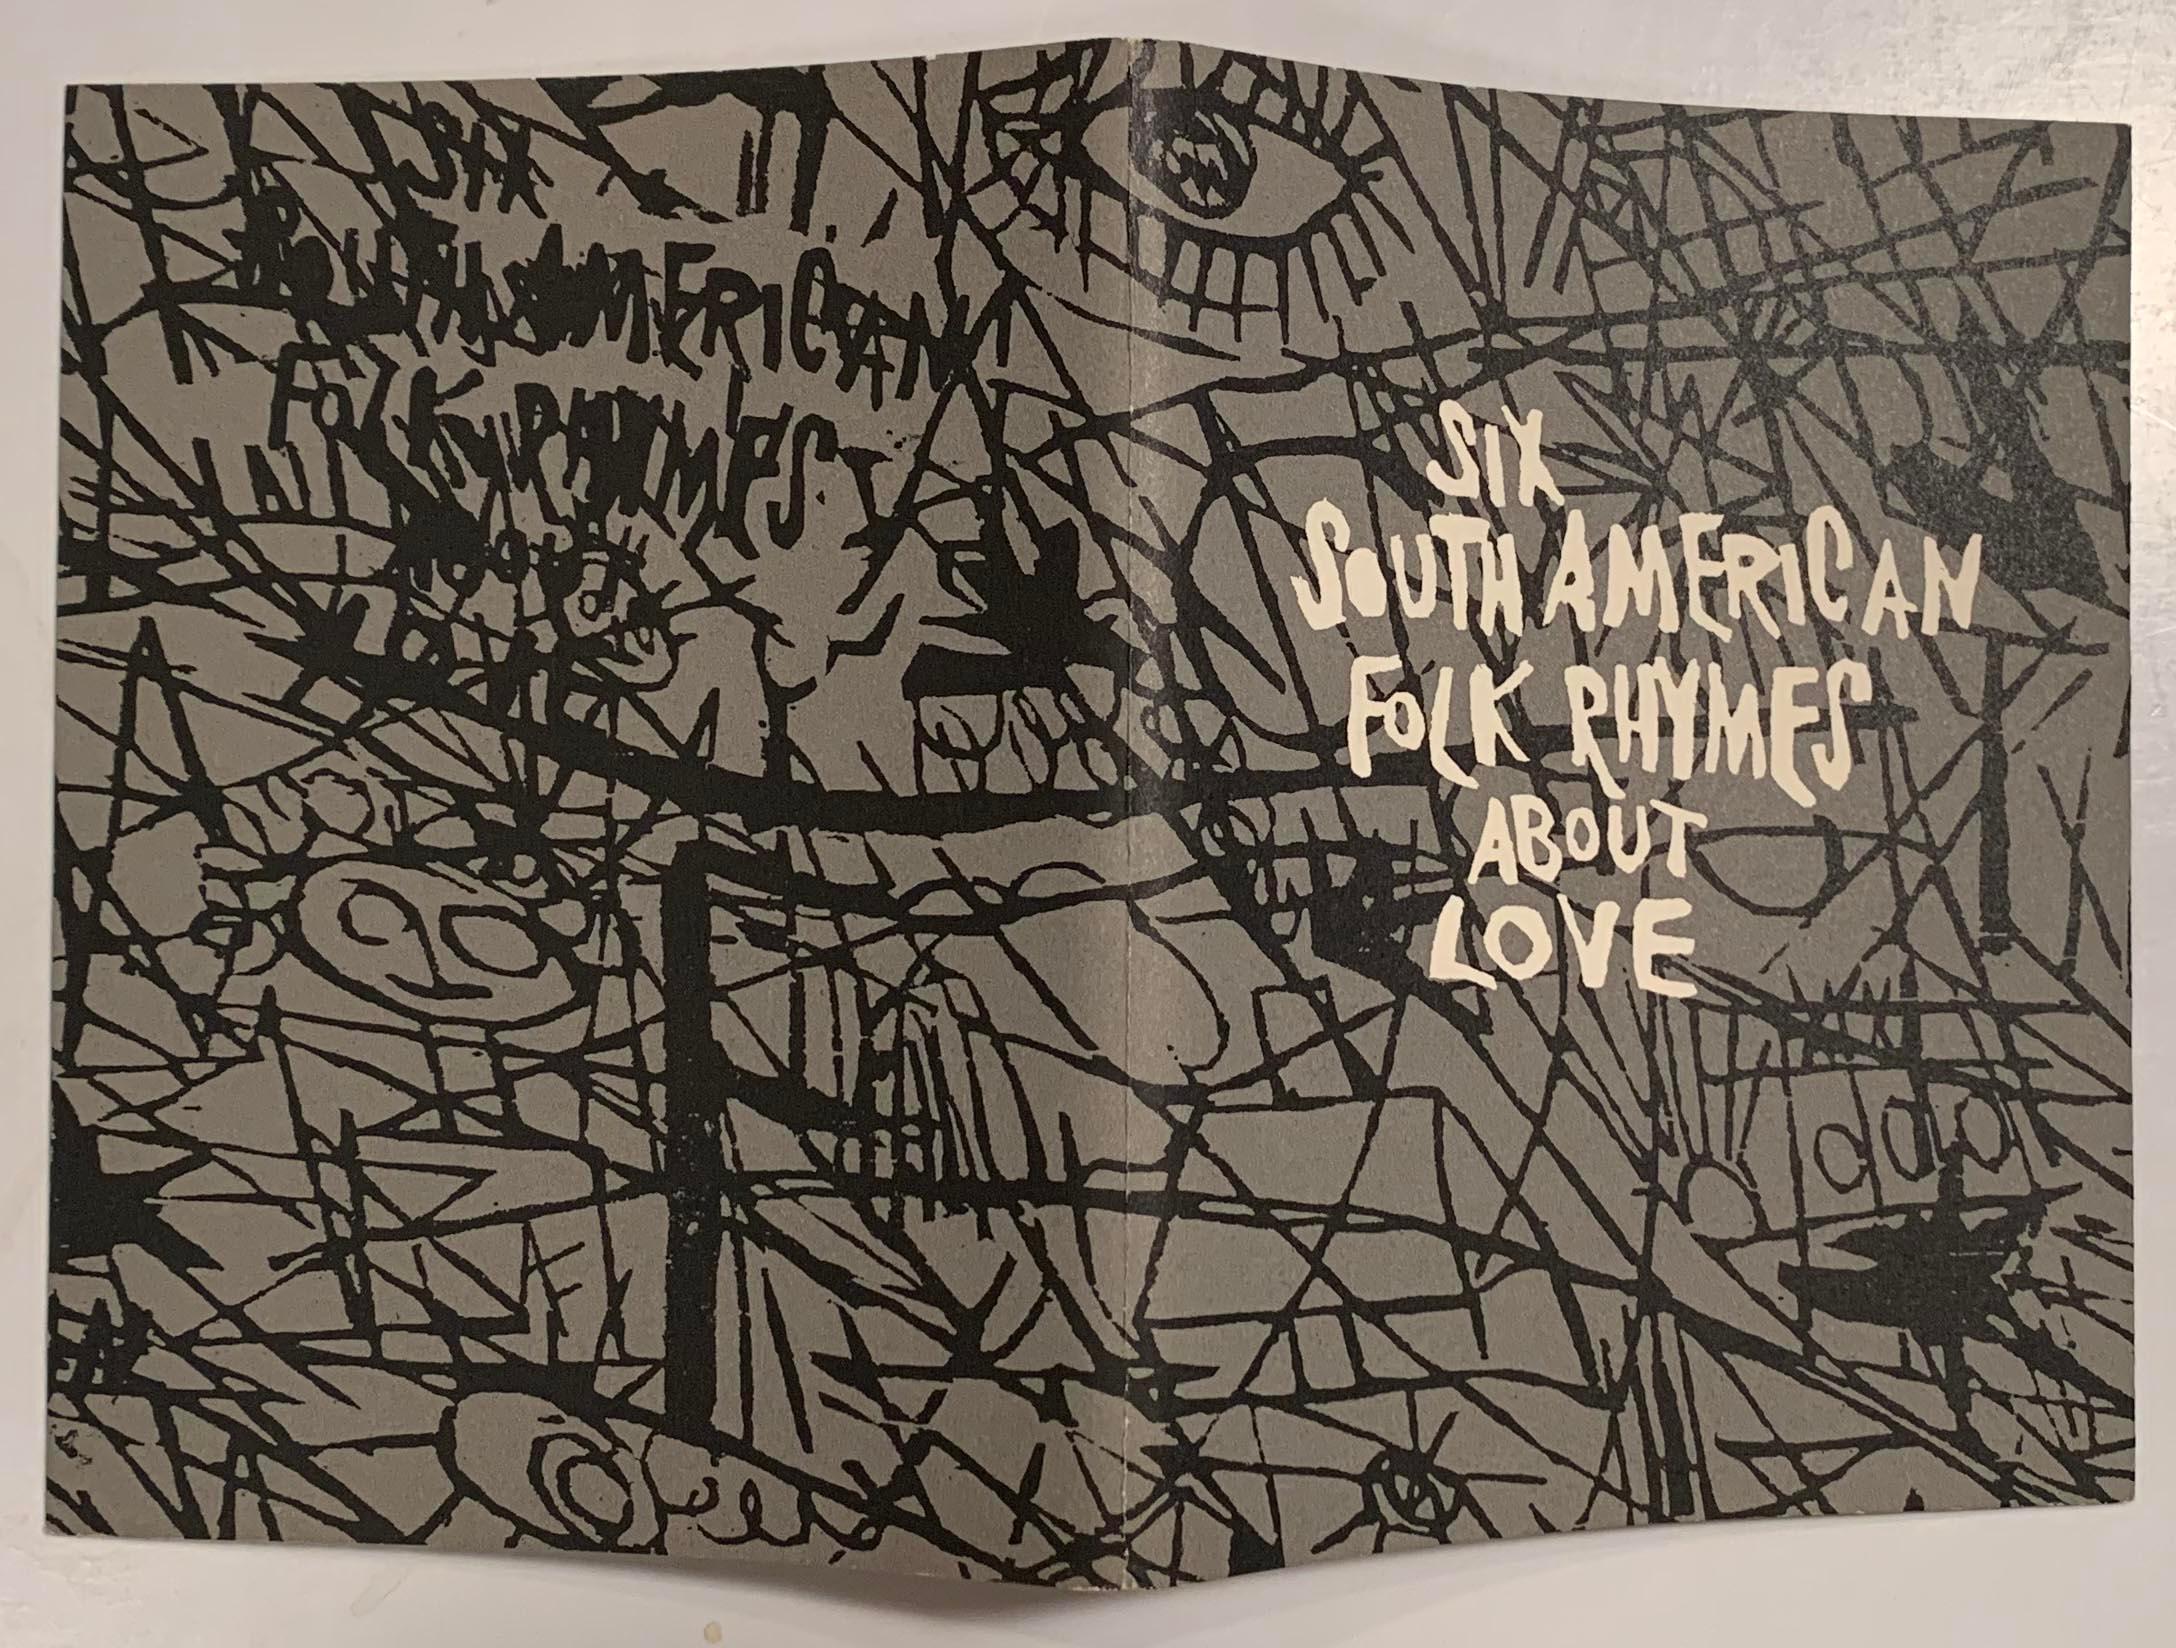 SIX
SOUTH AMERICAN
FOLK RHYMES
ABOUT
LOVE
SIX
SOUTH AMERICAN
FOLK RHYMES
ABOUT
LOVE